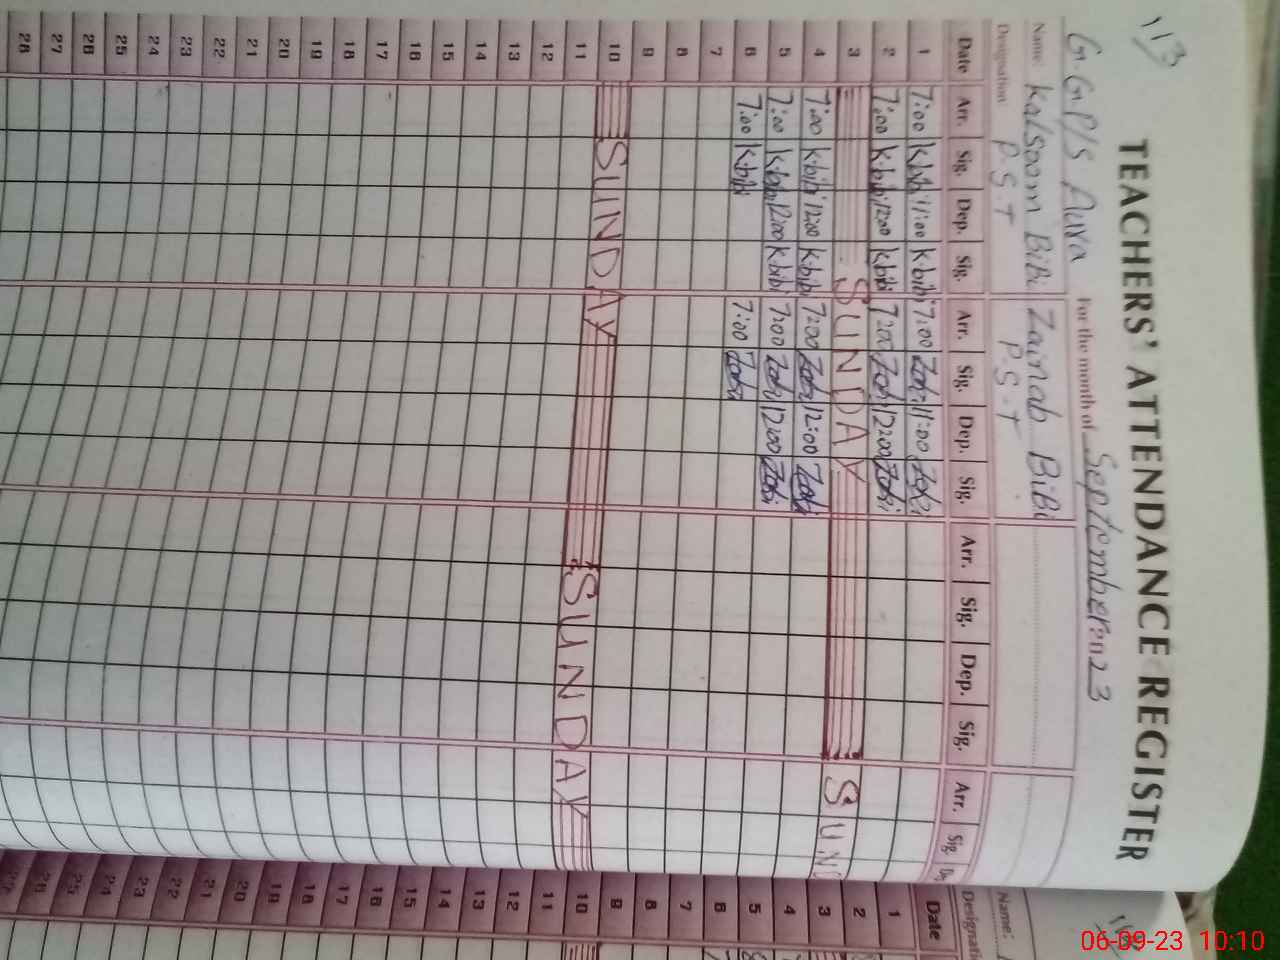 113
TEACHERS' ATTENDANCE REGISTER
G.G.P/S Aura For the month of September 2023
Name Kalsoom BiBi Zainab BiBi
Designation P.S.T P.S.T
Date Arr. Sig. Dep. Sig. Arr. Sig. Dep. Sig. Arr. Sig. Dep. Sig. Arr. Sig.
1 7:00 K.bibi 11:00 K.bibi 7:00 Zabi 11:00 Zabi
2 7:00 K.bibi 12:00 K.bibi 7:00 Zabi 12:00 Zabi
3 SUNDAY SUND
4 7:00 K.bibi 12:00 K.bibi 7:00 Zabi 12:00 Zabi
5 7:00 K.bibi 12:00 K.bibi 7:00 Zabi 12:00 Zabi
6 7:00 K.bibi 7:00 Zabi
7
8
9
10 SUNDAY SUNDAY
11
12
13
14
15
16
17
18
19
20
21
22
23
24
25
26
27
28
Name:
Date
1
2
3
4
5
6
7
8
9
10
11
12
13
14
15
16
17
18
19
20
21
22
23
24
25
26
06-09-23 10:10